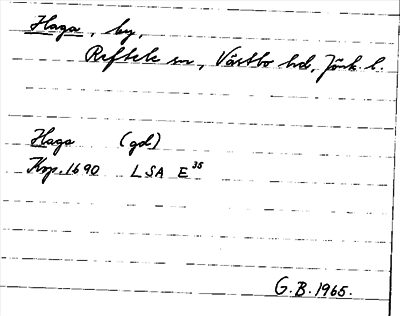 Haga, by,
Reftele sn, Västbo hd, Jönk. l.
Haga (gd)
Kop. 1690 LSA E 35
G.B. 1965.